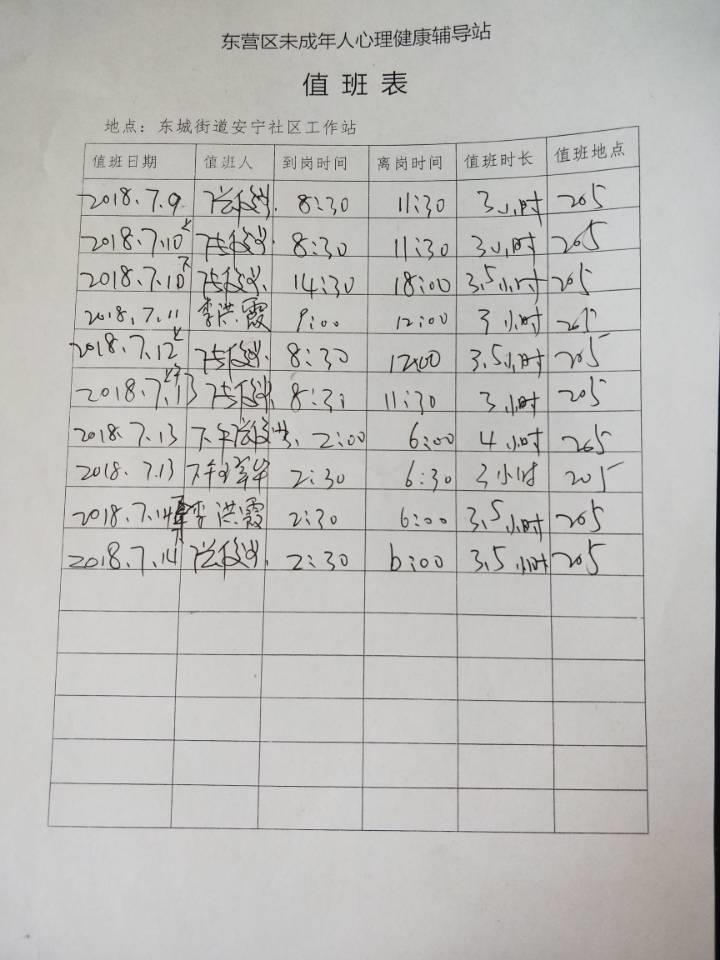 东营区未成年人心理健康辅导站
值班表
地点：东城街道安宁社区工作站
值班日期 值班人 到岗时间 离岗时间 值班时长 值班地点
2018.7.9 8:30 11:30 3小时 205
2018.7.10上 8:30 11:30 3小时 205
2018.7.10下 14:30 18:00 3.5小时 205
2018.7.11 李洪霞 9:00 12:00 3小时 205
2018.7.12上 8:30 12:00 3.5小时 205
2018.7.13上午 8:30 11:30 3小时 205
2018.7.13 下午 2:00 6:00 4小时 205
2018.7.13 下午 2:30 6:30 3小时 205
2018.7.14 李洪霞 2:30 6:00 3.5小时 205
2018.7.14下 2:30 6:00 3.5小时 205